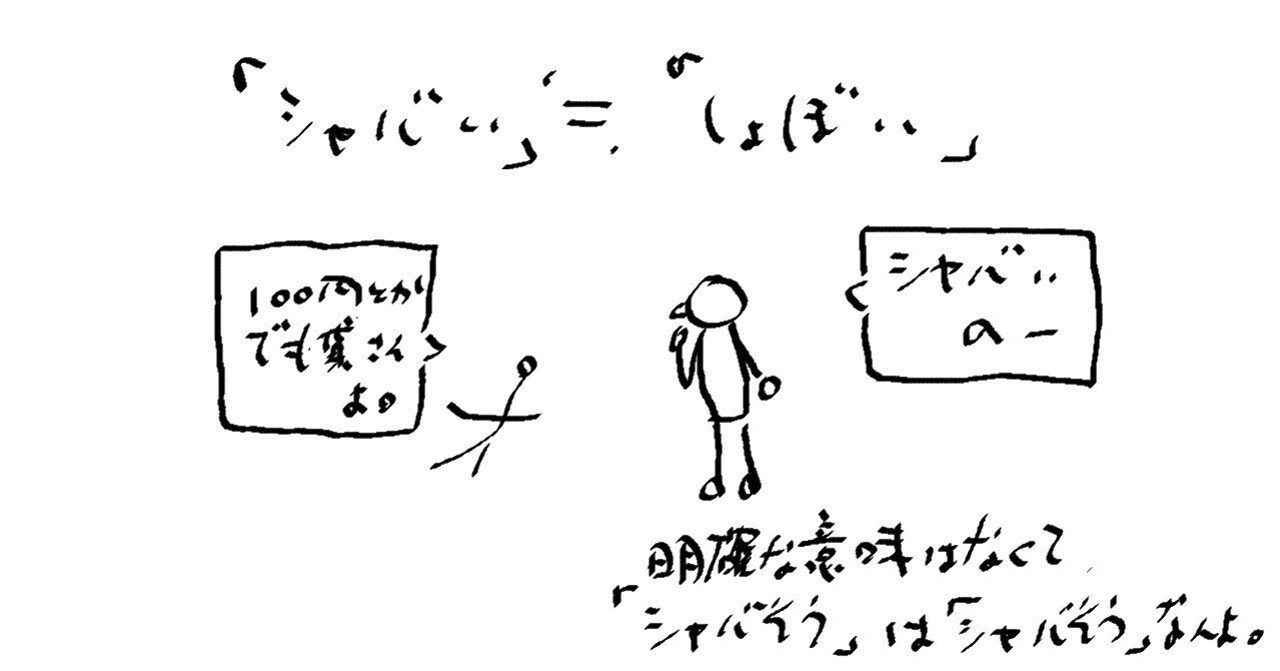 「シャバい」=「しょぼい」
100円とか
でも葉さん
よ。
シャバい
のー
明確な意味はなくて
「シャバそう」は「シャバそう」なんよ。